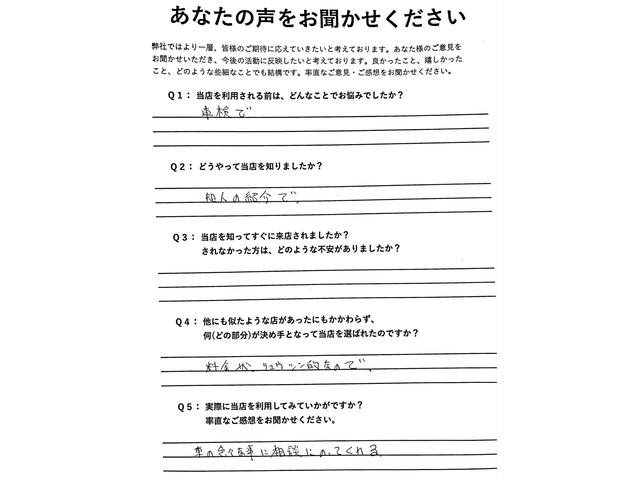 あなたの声をお聞かせください
弊社ではより一層、皆様のご期待に応えていきたいと考えております。あなた様のご意見を
お聞かせいただき、今後の活動に反映したいと考えております。良かったこと、嬉しかった
こと、どのような些細なことでも結構です。率直なご意見・ご感想をお聞かせください。
Q1： 当店を利用される前は、どんなことでお悩みでしたか？
車検で
Q2： どうやって当店を知りましたか？
知人の紹介で、
Q3： 当店を知ってすぐに来店されましたか？
されなかった方は、どのような不安がありましたか？
Q4： 他にも似たような店があったにもかかわらず、
何(どの部分)が決め手となって当店を選ばれたのですか？
料金が、リュウシン的なので、
Q5： 実際に当店を利用してみていかがですか？
率直なご感想をお聞かせください。
車の色々な事に相談にのってくれる